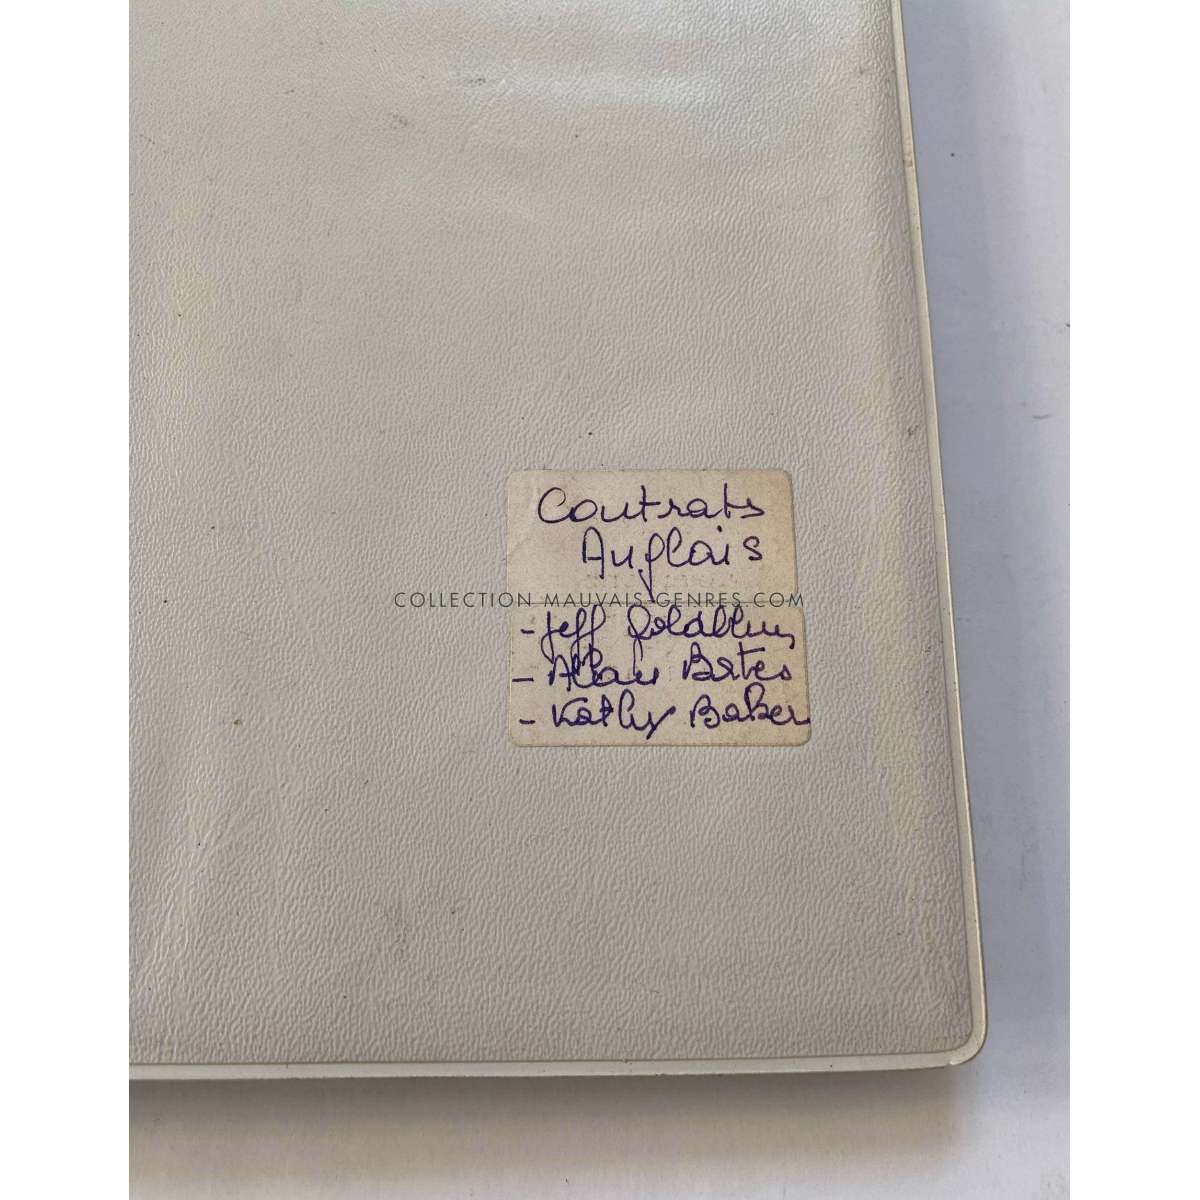 Contrats
Anglais
COLLECTION MAUVAIS-GENRES.COM
- Jeff Goldblum
- Alan Bates
- Kathy Baker